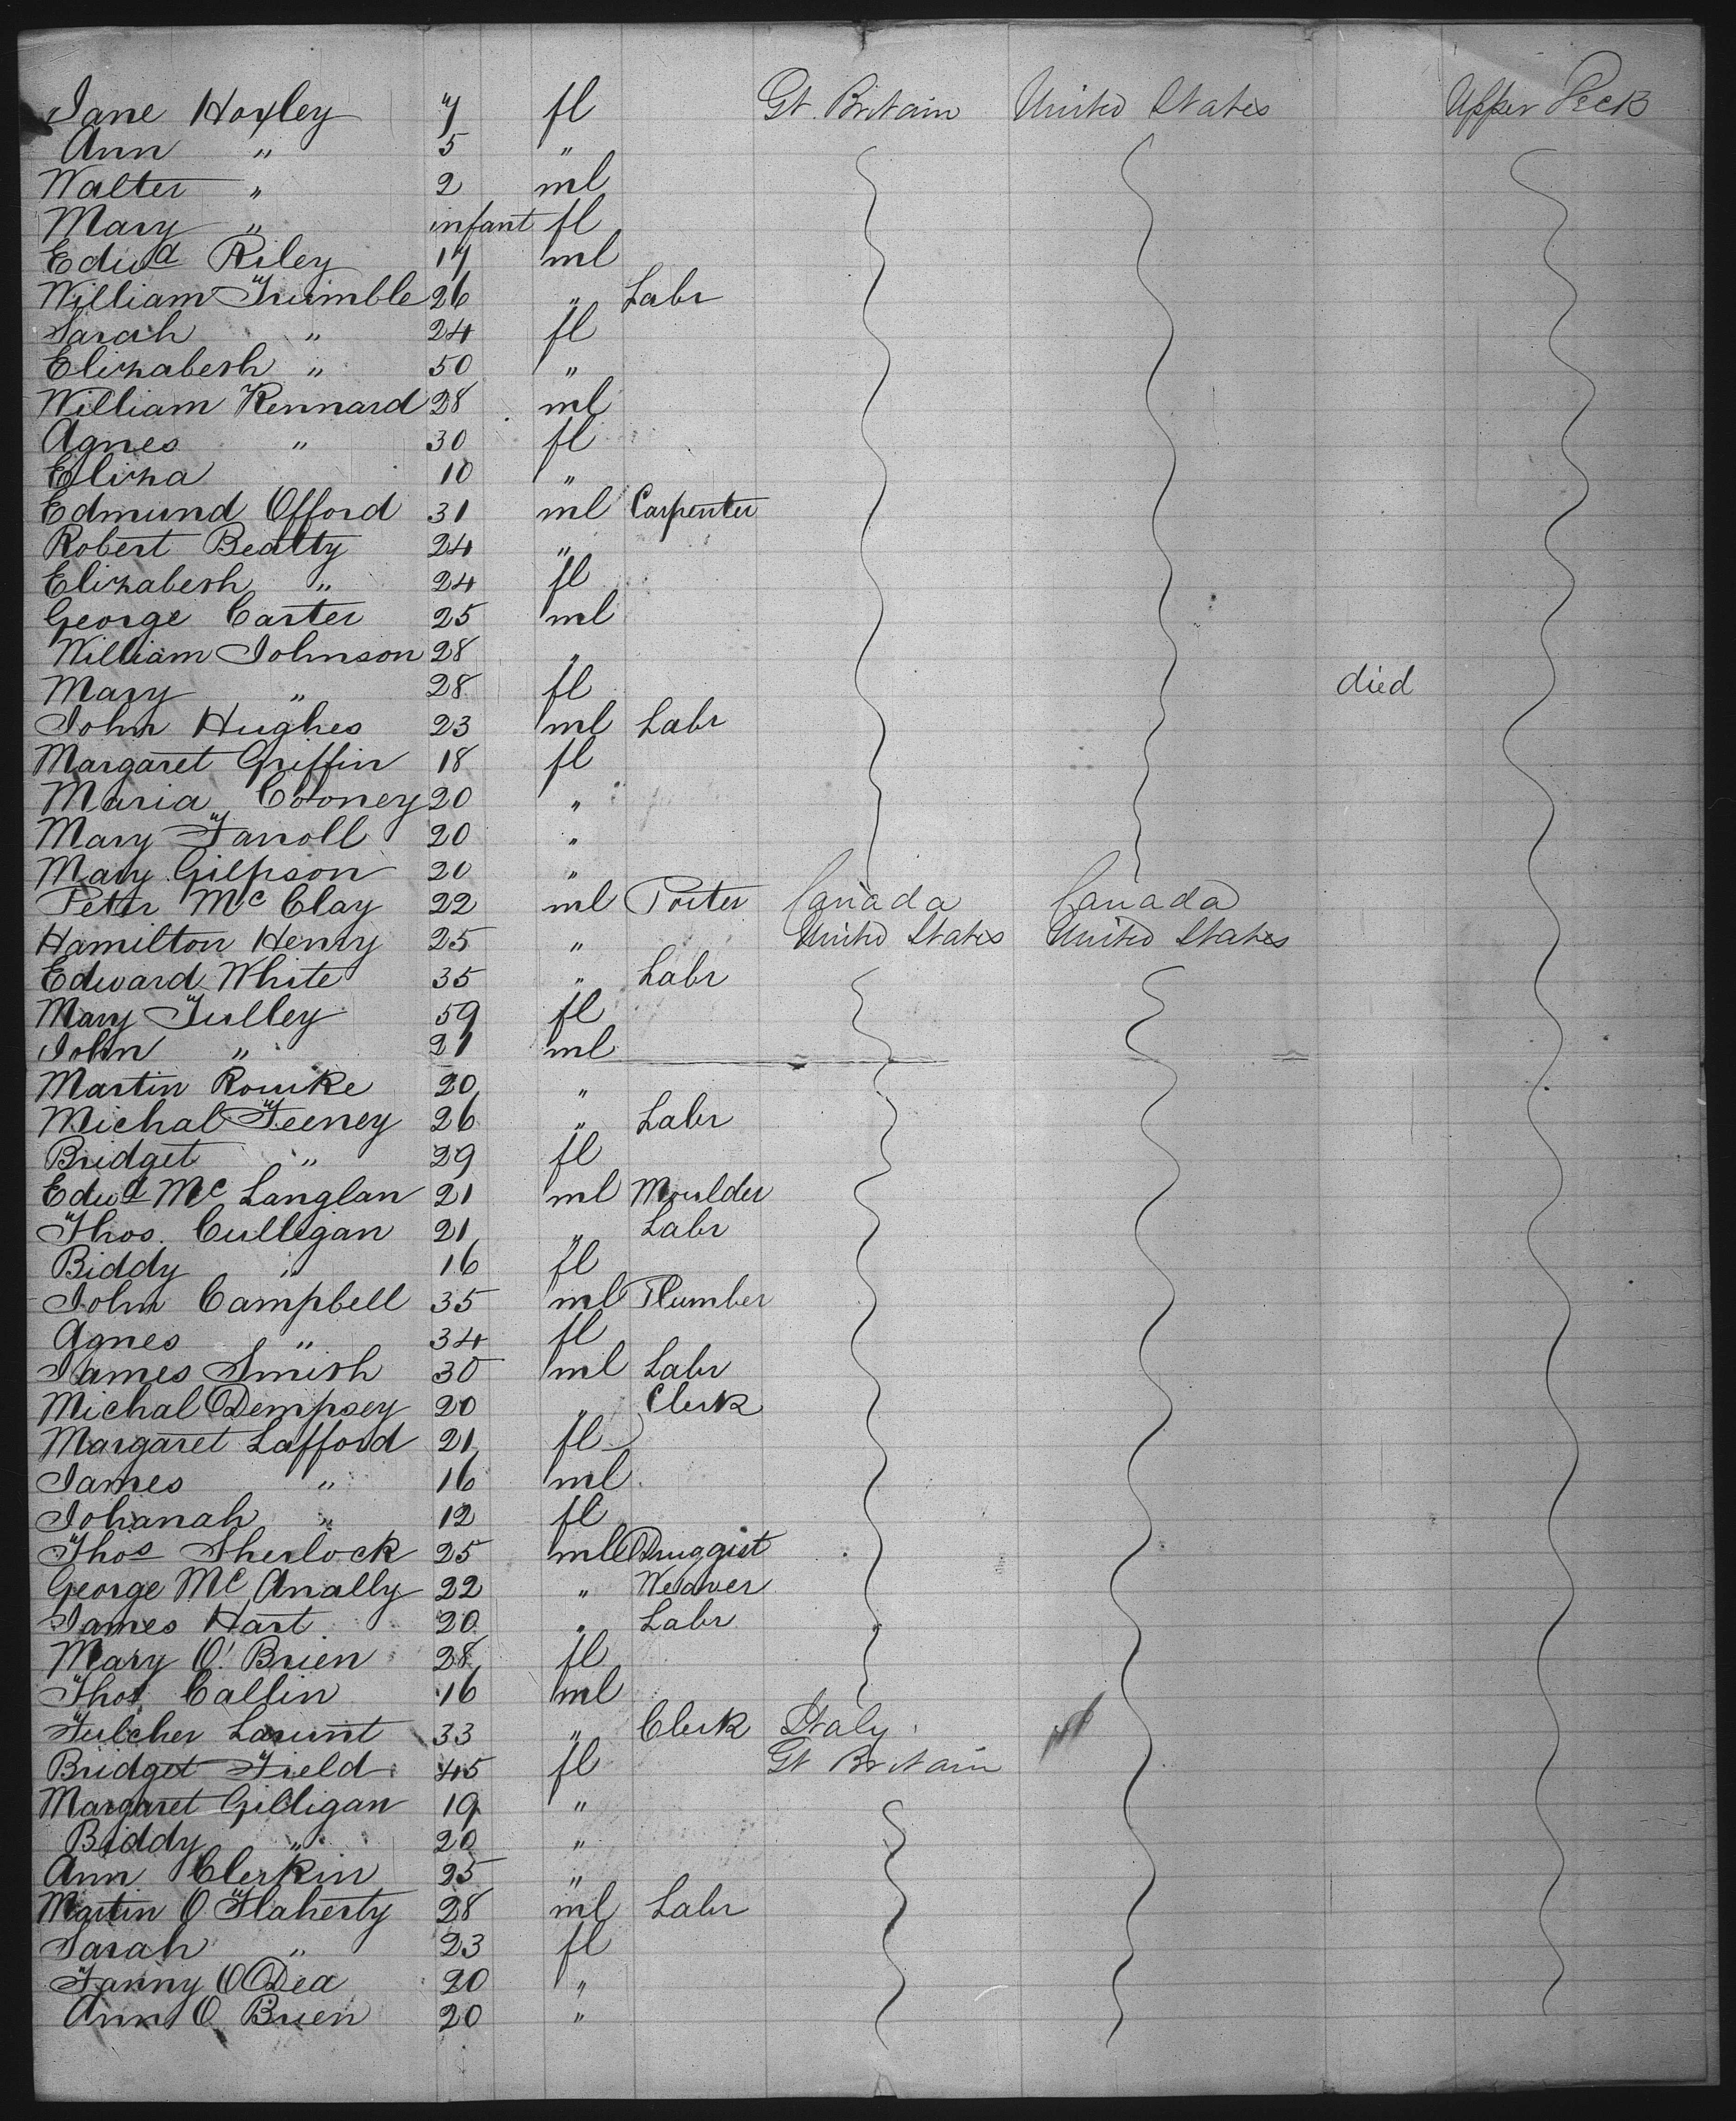 Jane Hoxley 7 fl Gt. Britain United States Upper Deck
Ann " 5 "
Walter " 2 ml
Mary " infant fl
Edwd Riley 17 ml
William Trumble 26 " Labr
Sarah " 24 fl
Elizabeth " 50 "
William Kennard 28 ml
Agnes " 30 fl
Eliza 10 "
Edmund Offord 31 ml Carpenter
Robert Beatty 24 "
Elizabeth " 24 fl
George Carter 25 ml
William Johnson 28 "
Mary " 28 fl died
John Hughes 23 ml Labr
Margaret Griffin 18 fl
Maria Cooney 20 "
Mary Farroll 20 "
Mary Gilpson 20 "
Peter Mc Clay 22 ml Porter Canada Canada
Hamilton Henry 25 " United States United States
Edward White 35 " Labr
Mary Tulley 59 fl
John " 21 ml
Martin Rourke 20 "
Michal Feeney 26 " Labr
Bridget " 29 fl
Edwd Mc Langlan 21 ml Moulder
Thos. Culligan 21 " Labr
Biddy " 16 fl
John Campbell 35 ml Plumber
Agnes " 34 fl
James Smith 30 ml Labr
Michal Dempsey 20 " Clerk
Margaret Lafford 21 fl
James " 16 ml
Johanah " 12 fl
Thos Sherlock 25 ml Druggist
George Mc Anally 22 " Weaver
James Hart 20 " Labr
Mary O'Brien 28 fl
Thos Callin 16 ml
Fulcher Laurint 33 " Clerk Italy
Bridget Field 45 fl Gt Britain
Margaret Gilligan 19 "
Biddy " 20 "
Ann Clerkin 25 "
Martin O Flaherty 28 ml Labr
Sarah " 23 fl
Fanny O Dea 20 "
Ann O Brien 20 "